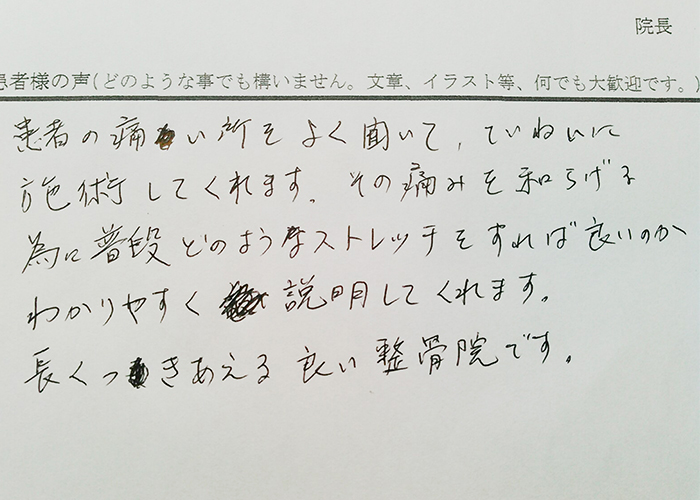 院長
患者様の声(どのような事でも構いません。文章、イラスト等、何でも大歓迎です。)
患者の痛い所をよく聞いて、ていねいに
施術してくれます。その痛みを和らげる
為に普段どのようなストレッチをすれば良いのか
わかりやすく説明してくれます。
長くつきあえる良い整骨院です。